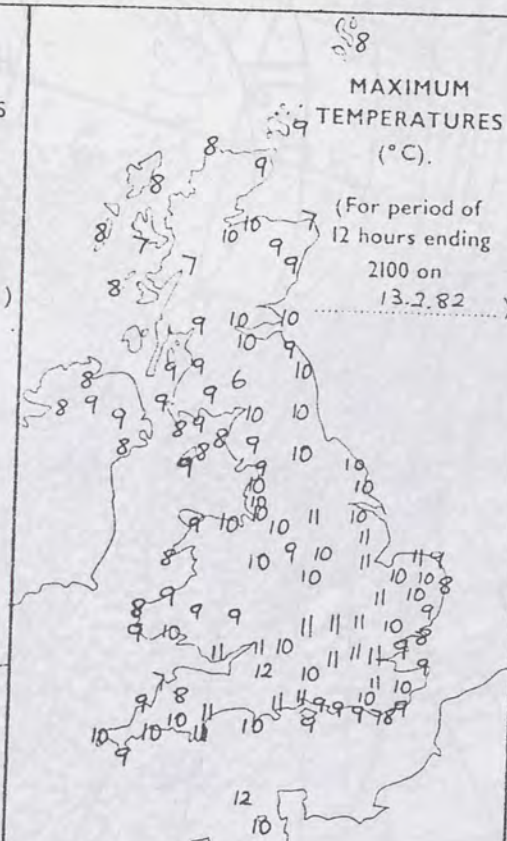 8
MAXIMUM
TEMPERATURES
(°C).
(For period of
12 hours ending
2100 on
13.2.82 )
5
)
9
8
9
8
8
10 10 7
7
9
9
7
8
9 10 10
10 9
9 9 10
6
8 9
8 9 9 9 10 10
8 9
8 8 9
9 9 10
10 10
10 10
9 10 10 11 10
11
8 10 9 10 11 11 9
10 10 10 8
9 11 10
8 9 9 9
9 10 11 11 11 10 8
11 11 10 11 11 11 9
12 10 9
9 8 11 10
11 11 10
10 10 10 11 10 9 9 9 9 8 9
9 11
12
10